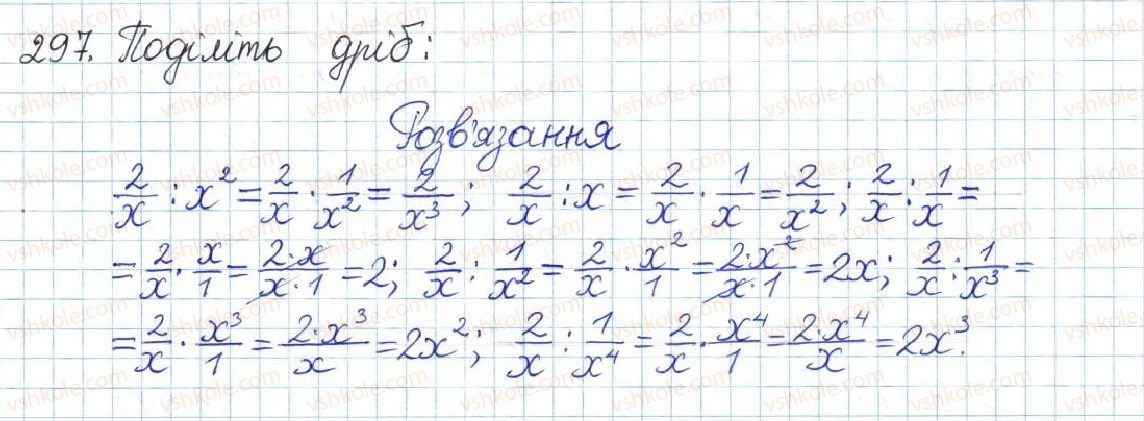 297. Поділіть дріб:
Розв'язання
2/x : x² = 2/x · 1/x² = 2/x³; 2/x : x = 2/x · 1/x = 2/x²; 2/x : 1/x =
= 2/x · x/1 = 2·x/x·1 = 2; 2/x : 1/x² = 2/x · x²/1 = 2·x²/x·1 = 2x; 2/x : 1/x³ =
= 2/x · x³/1 = 2·x³/x = 2x²; 2/x : 1/x⁴ = 2/x · x⁴/1 = 2·x⁴/x = 2x³.
vshkole.com